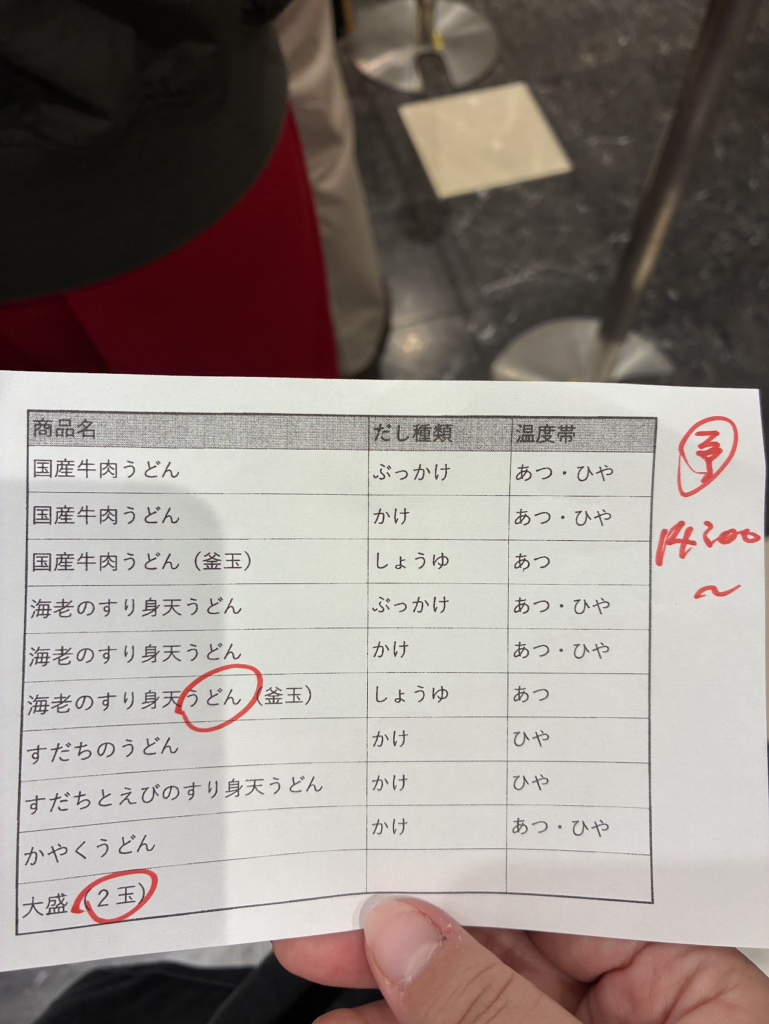 商品名 だし種類 温度帯
国産牛肉うどん ぶっかけ あつ・ひや
国産牛肉うどん かけ あつ・ひや
国産牛肉うどん（釜玉） しょうゆ あつ
海老のすり身天うどん ぶっかけ あつ・ひや
海老のすり身天うどん かけ あつ・ひや
海老のすり身天うどん（釜玉） しょうゆ あつ
すだちのうどん かけ ひや
すだちとえびのすり身天うどん かけ ひや
かやくうどん かけ あつ・ひや
大盛（２玉）
〜